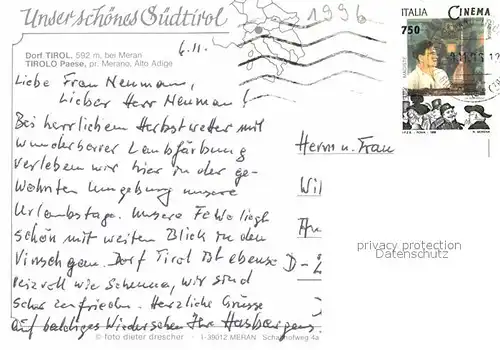 Unser schönes Südtirol
1996
6.11.
Dorf TIROL, 592 m, bei Meran
TIROLO Paese, pr. Merano, Alto Adige
ITALIA CINEMA
750
Liebe Frau Neumann,
Lieber Herr Neumann!
Bei herrlichem Herbstwetter mit
wunderbarer Laubfärbung
verleben wir hier in der ge-
wohnten Umgebung unsere
Urlaubstage. Unsere FeWo liegt
schön mit weiten Blick in den
Vinschgau. Dorf Tirol ist ebenso
reizvoll wie Schenna, wir sind
sehr zufrieden. Herzliche Grüsse
auf baldiges Wiedersehen Ihre
Herrn u. Frau
Wil
D-
privacy protection
Datenschutz
© foto dieter drescher · I-39012 MERAN · Schafhofweg 4a